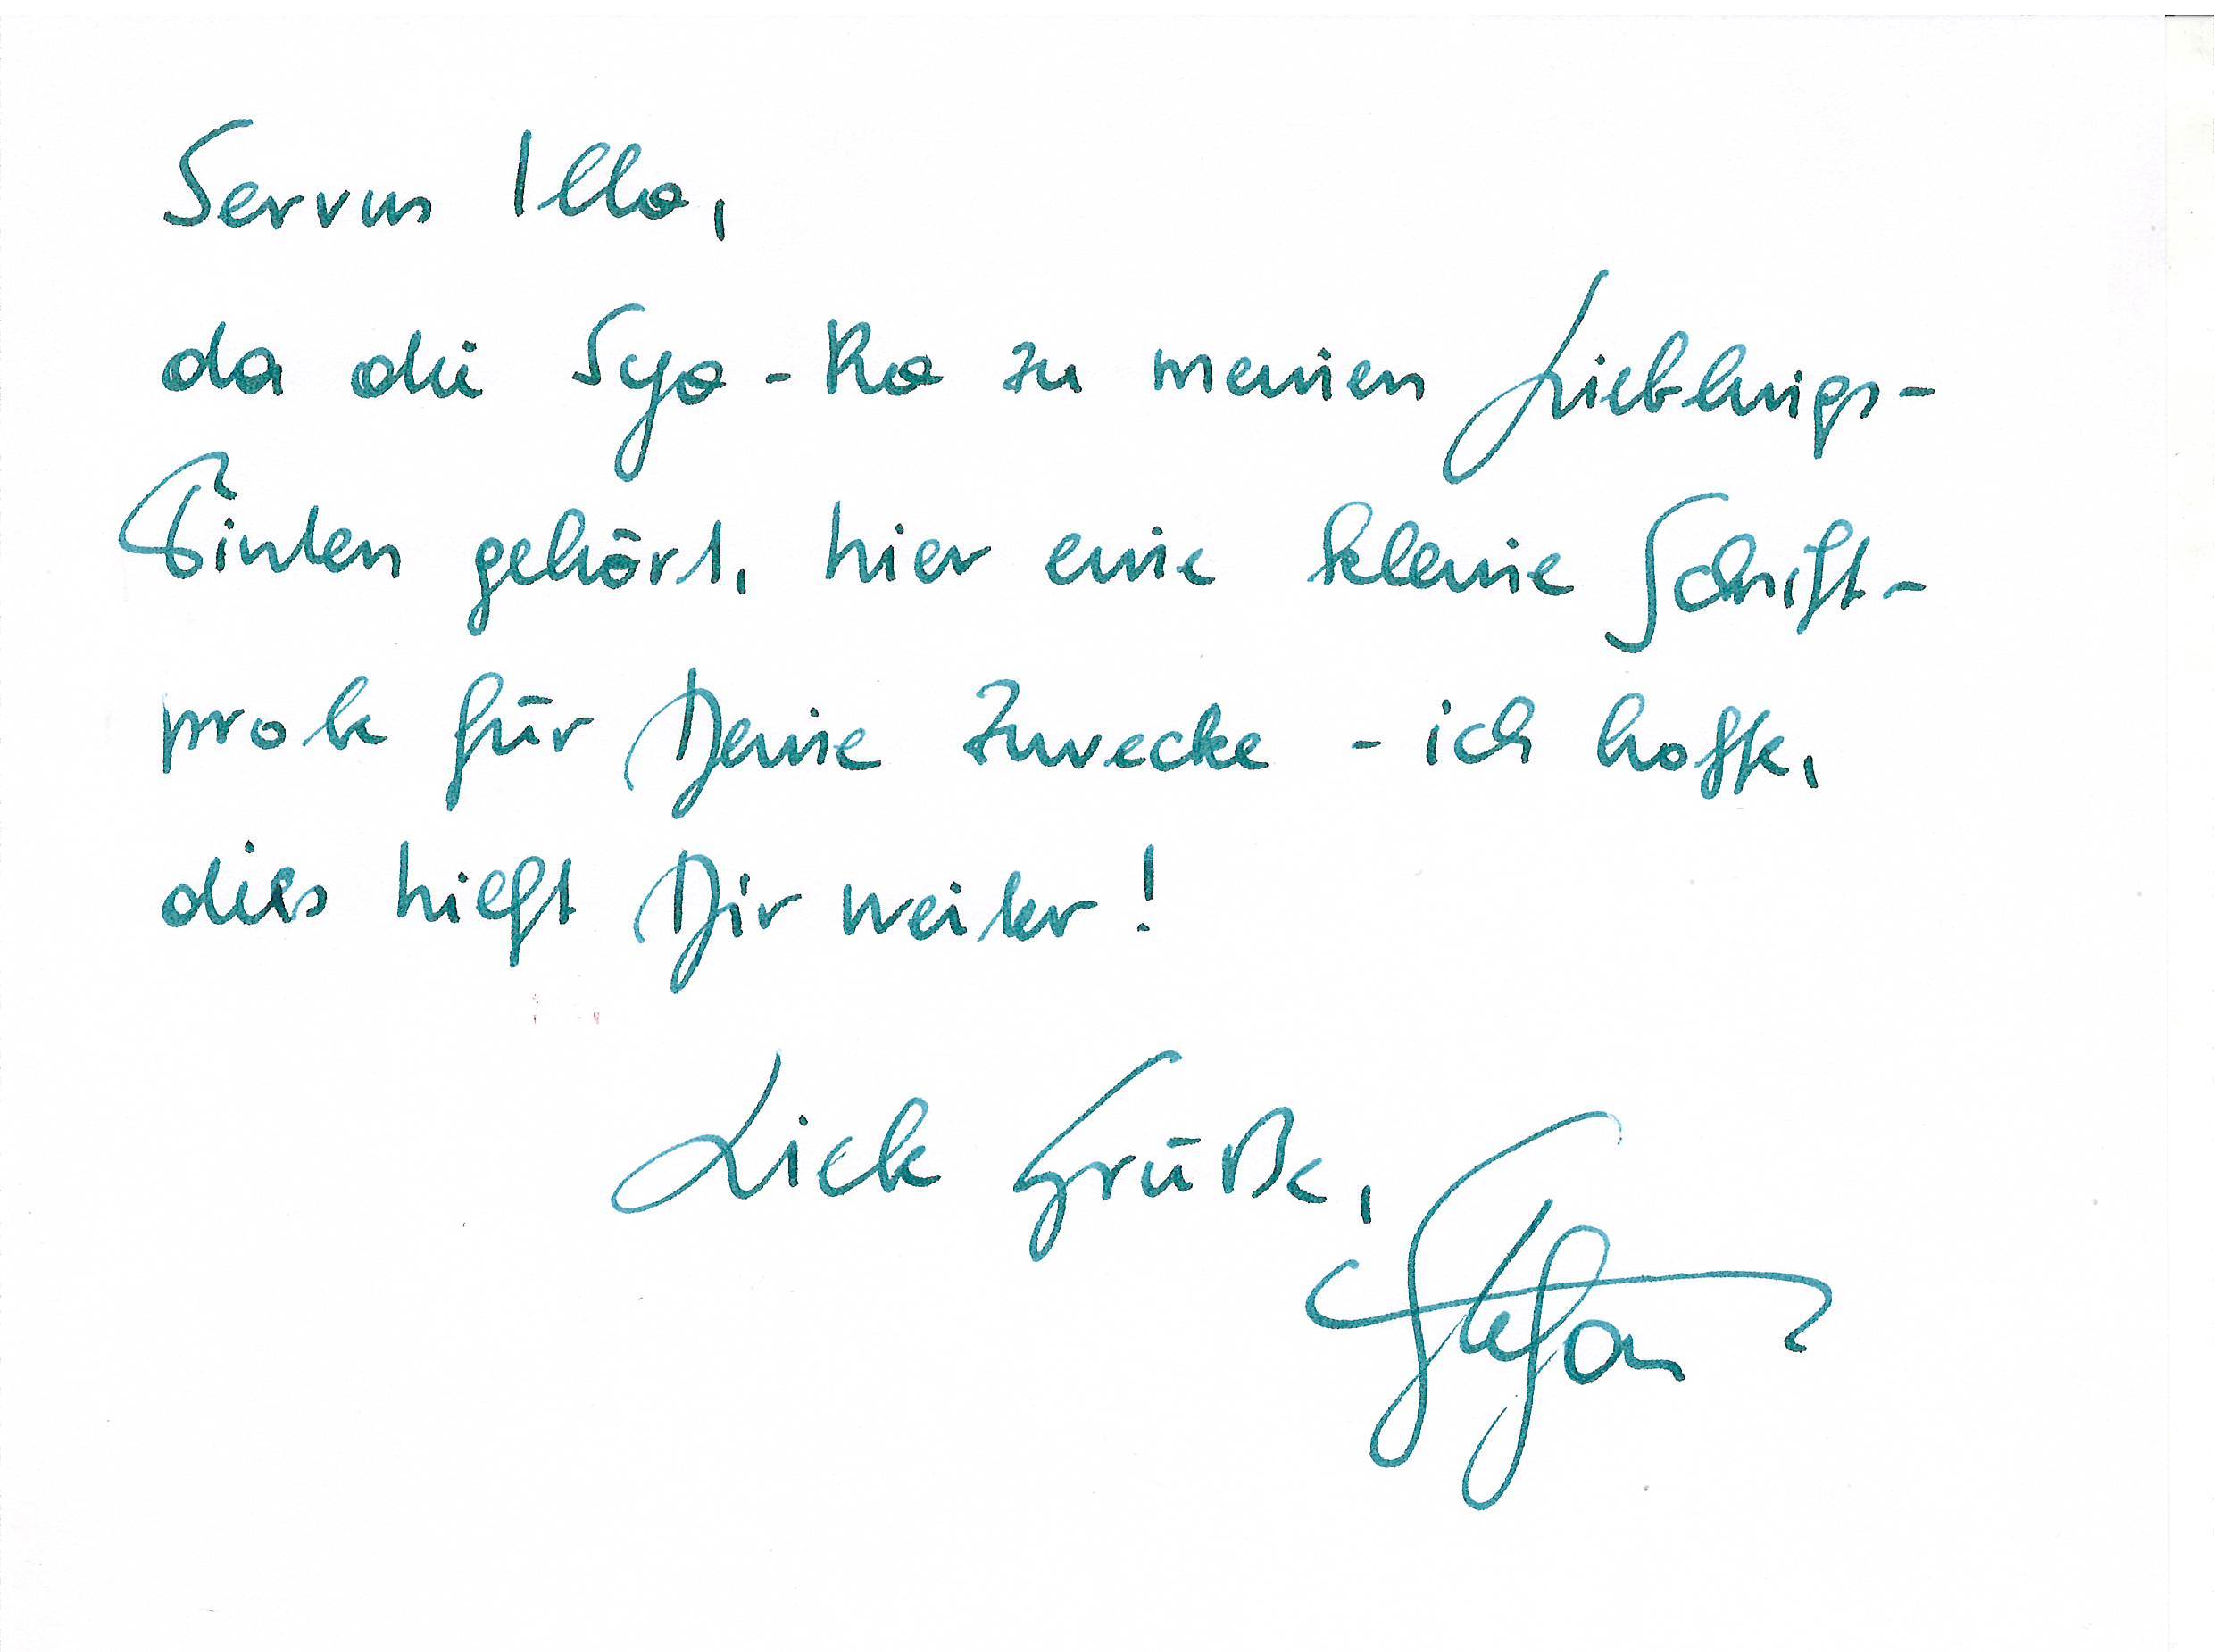 Servus Illo,
da die Syo-Ro zu meinen Lieblings-
Tinten gehört, hier eine kleine Schrift-
probe für Deine Zwecke - ich hoffe,
dies hilft Dir weiter!
Liebe Grüße,
Stefan